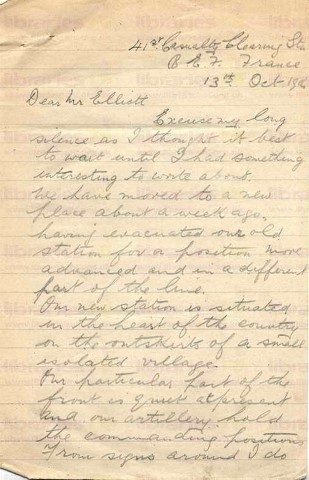 41st Casualty Clearing Stn
B E F. France
13th Oct 191
Dear Mr Elliott
Excuse my long
silence as I thought it best
to wait until I had something
interesting to wrote about.
We have moved to a new
place about a week ago,
having evacuated our old
station for a position more
advanced and in a different
part of the line.
Our new station is situated
in the heart of the country
on the outskirts of a small
isolated village.
Our particular part of the
front is quiet at present
and our artillery hold
the commanding positions
From signs around I do